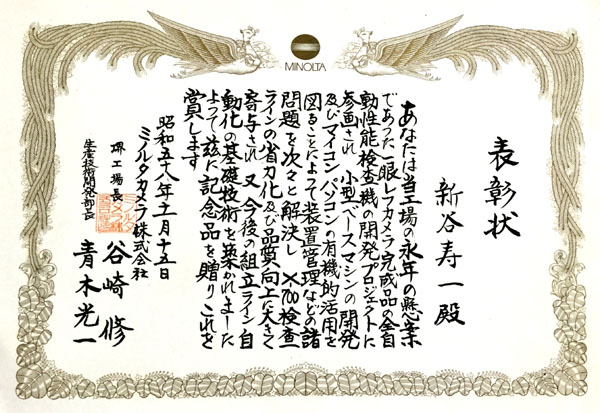 MINOLTA
表彰状
新谷寿一殿
あなたは当工場の永年の懸案
であった一眼レフカメラ完成品の全自
動性能検査機の開発プロジェクトに
参画され 小型ベースマシンの開発
及びマイコン、パソコンの有機的活用を
図ることによって装置管理などの諸
問題を次々と解決し X-700検査
ラインの省力化及び品質向上に大きく
寄与され 又 今後の組立ライン自
動化の基礎技術を築かれました
よって茲に記念品を贈りこれを
賞します
昭和五十八年十一月十五日
ミノルタカメラ株式会社
堺工場長 谷崎修
生産技術開発部長 青木光一